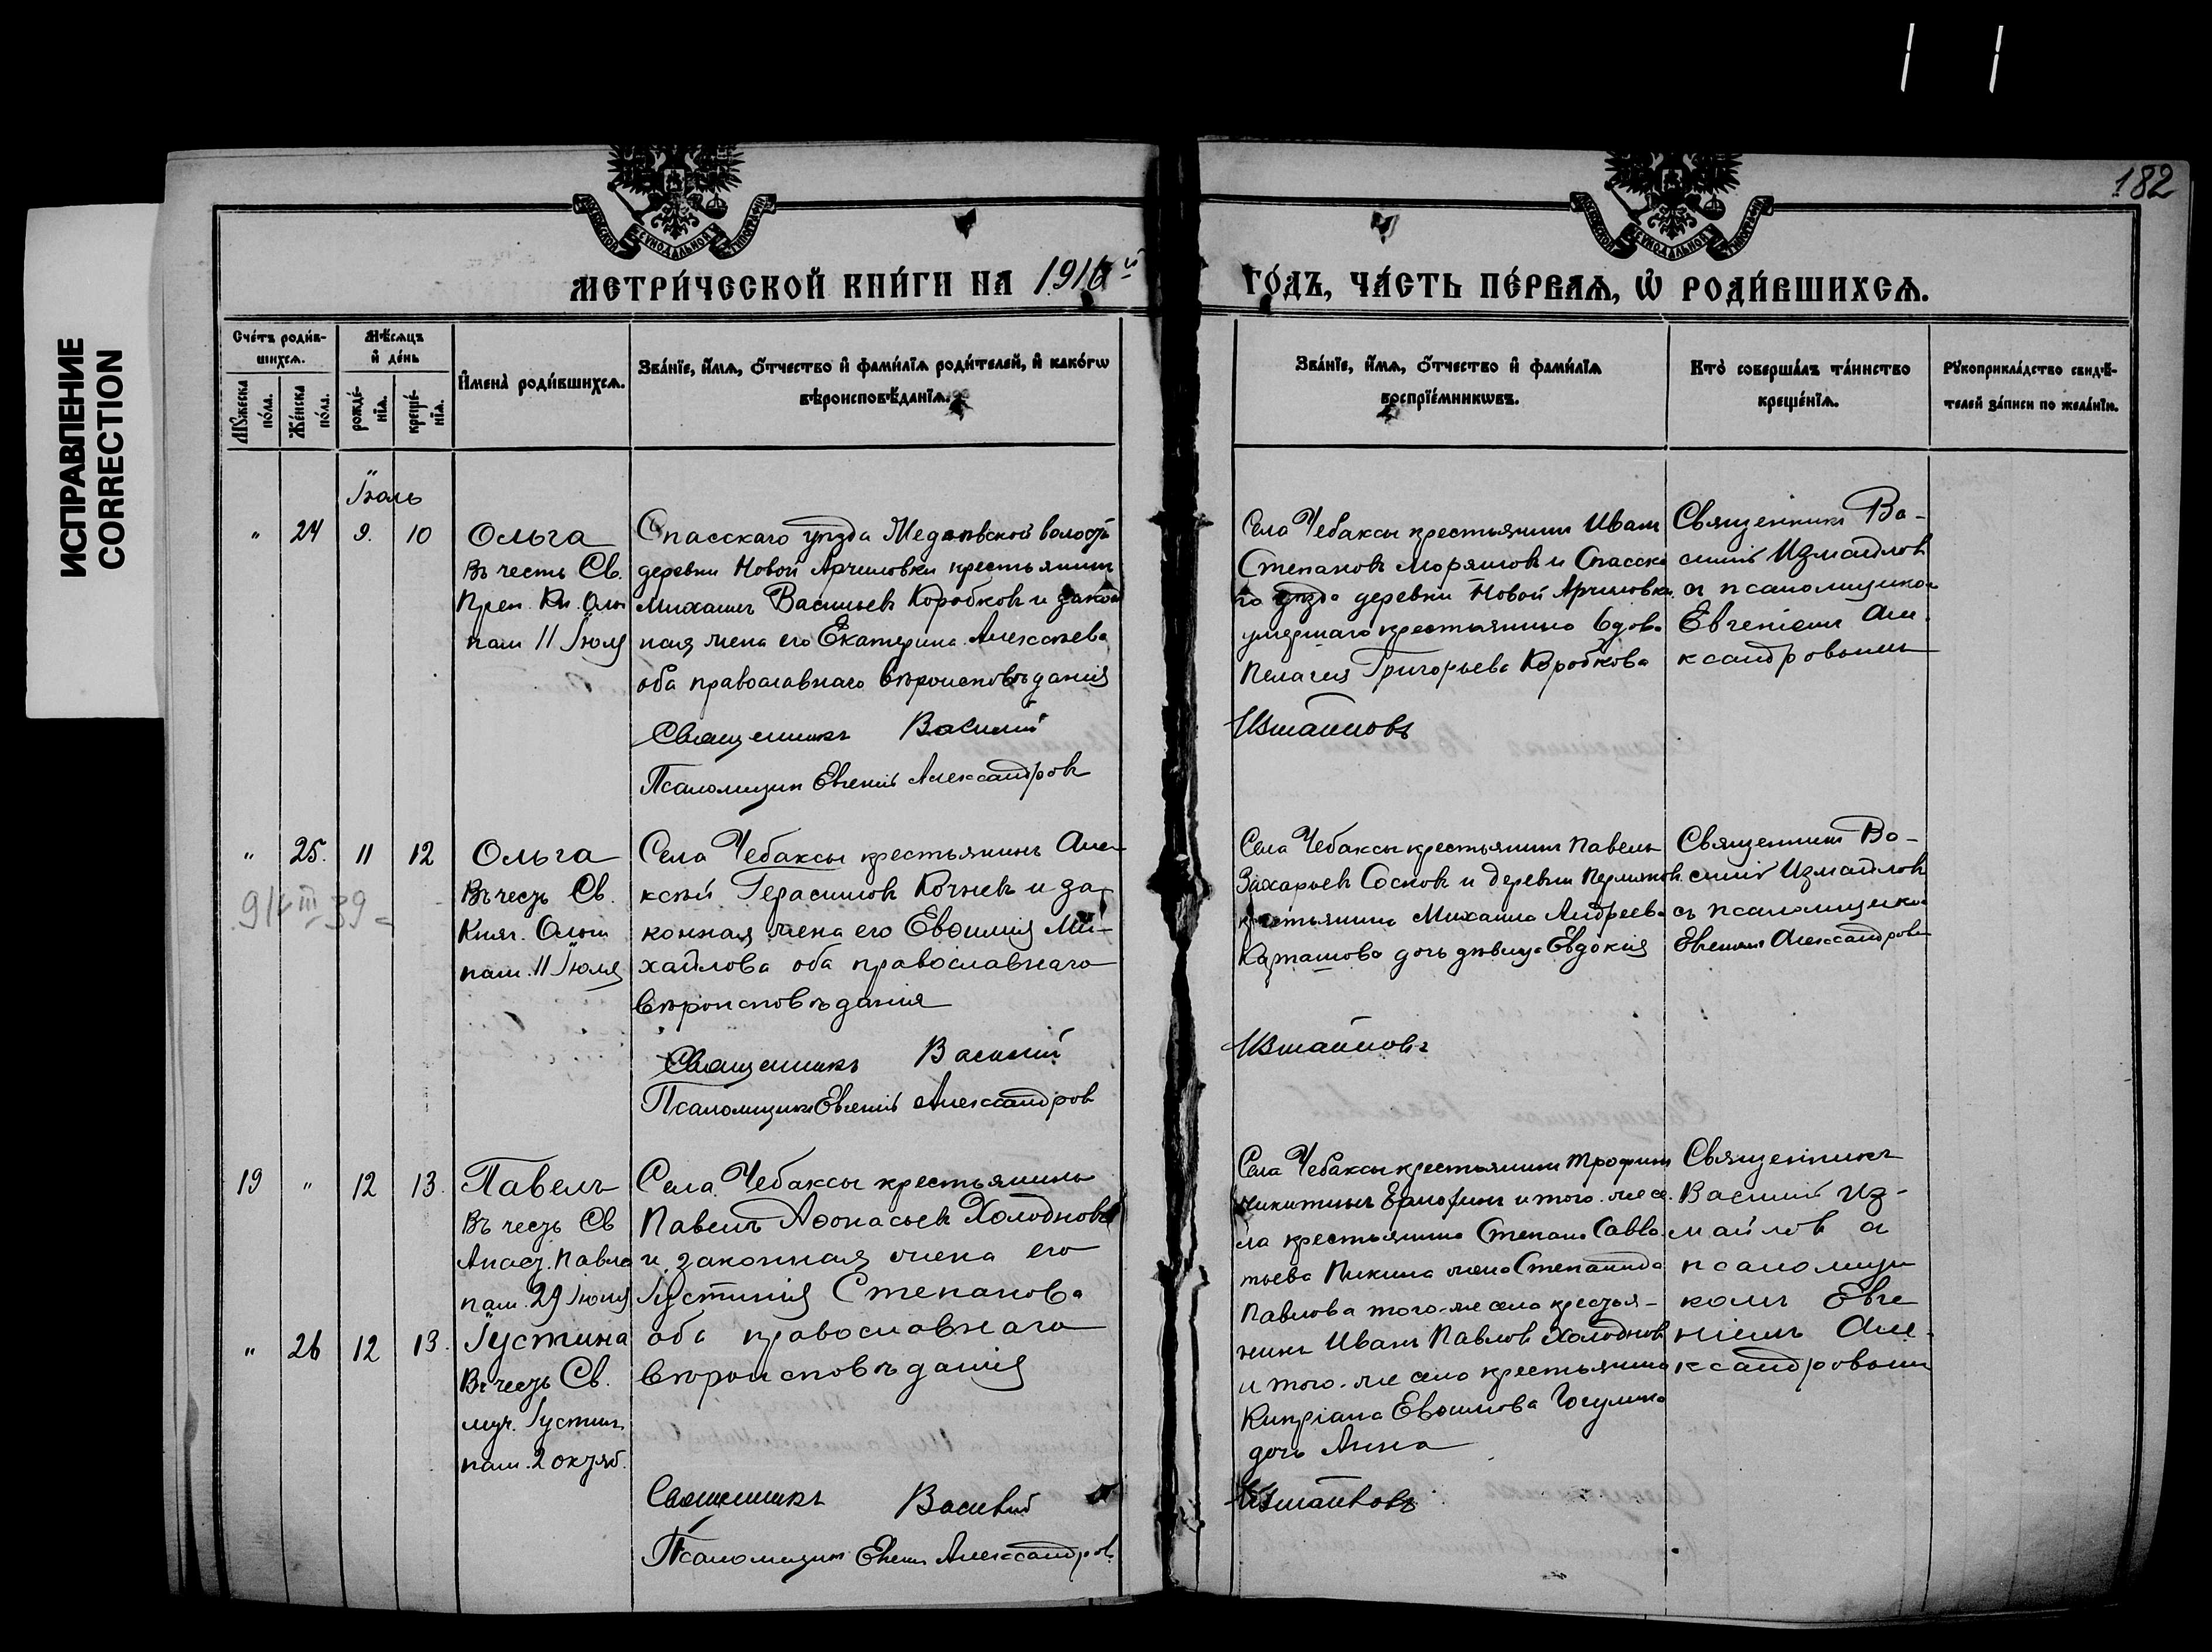 182
ИСПРАВЛЕНИЕ
CORRECTION
МОСКОВСКОЙ СУНОДАЛЬНОЙ ТИПОГРАФІИ
МОСКОВСКОЙ СУНОДАЛЬНОЙ ТИПОГРАФІИ
МЕТРИ́ЧЕСКОЙ КНИ́ГИ НА 1916й ГО́ДЪ, ЧА́СТЬ ПЕ́РВАѦ, Ѡ҆ РОДИ́ВШИХСѦ.
Сче́тъ роди́в-
шихсѧ.
Мꙋ́жеска
по́ла.
Же́нска
по́ла.
Мѣ́сѧцъ
и҆ де́нь
рожде́-
нїѧ.
креще́-
нїѧ.
И҆мена̀ роди́вшихсѧ.
Зва́нїе, и҆́мѧ, ѻ҆́тчество и҆ фами́лїѧ роди́телей, и҆ како́гѡ
вѣроисповѣ́данїѧ.
Зва́нїе, и҆́мѧ, ѻ҆́тчество и҆ фами́лїѧ
воспрїе́мникѡвъ.
Кто̀ соверша́лъ та́инство
креще́нїѧ.
Рꙋкоприкла́дство свидѣ́-
телей за́писи по жела́нїю.
Іюль
" 24 9. 10
Ольга
Въ честь Св.
пам 11 Іюля
Спасскаго уѣзда
деревни Новой Арчиловки крестьянинъ
Михаилъ Васильевъ Коробковъ и закон
ная жена его Екатерина Алексѣева
оба православнаго вѣроисповѣданія
Священникъ Василій
Псаломщикъ Евгеній Александровъ
Села Чебаксы крестьянинъ Иванъ
Степановъ Моряшовъ и Спасска
го уѣзда деревни Новой Арчиловки
умершаго крестьянина вдова
Пелагія Григорьева Коробкова
Измайловъ
Священникъ Ва-
силій Измайловъ
съ псаломщикомъ
Евгеніемъ Але
ксандровымъ
" 25. 11 12
914 III 39
Ольга
Въ честь Св.
Княг. Ольги
пам. 11 Іюля
Села Чебаксы крестьянинъ Але
ксѣй Герасимовъ Кочневъ и за-
конная жена его Евѳимія Ми-
хайлова оба православнаго
вѣроисповѣданія
Священникъ Василій
Псаломщикъ Евгеній Александровъ
Села Чебаксы крестьянинъ Павелъ
Захарьевъ Сосковъ и деревни
крестьянина Михаила Андреева
Карташова дочь дѣвица Евдокія
Измайловъ
Священникъ Ва-
силій Измайловъ
съ псаломщикомъ
Евгеніемъ Александровы
19 " 12 13.
Павелъ
Въ честь Св
Апост. Павла
пам. 29 Іюня
Села Чебаксы крестьянинъ
Павелъ Аѳонасьевъ Холодновъ
и законная жена его
Іустинія Степанова
оба православнаго
вѣроисповѣданія
" 26 12 13.
Іустина
Въ честь Св.
муч. Іустин.
пам. 2 октяб.
Священникъ Василій
Псаломщикъ Евгеній Александровъ
Села Чебаксы крестьянинъ Трофимъ
Никитинъ и того-же се
ла крестьянина Степана Савва
тьева Пикина жена Степанида
Павлова того-же села крестья-
нинъ Иванъ Павловъ Холодновъ
и того-же села крестьянина
Кипріана Евѳимова
дочь Анна
Измайловъ
Священникъ
Василій Из-
майловъ съ
псаломщи
комъ Евге
ніемъ Але-
ксандровымъ